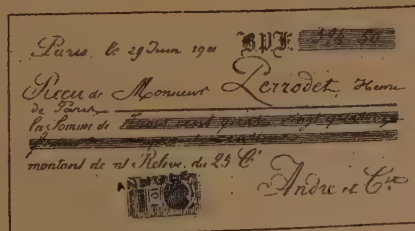 Paris, le 29 Juin 1911 B.P.F. 394 80
Reçu de Monsieur Perrodet, Henri
de Paris
la Somme de Trois cent quatre vingt quatorze
montant de nt Relevé du 25 Ct
ANNULÉ
André et Cie